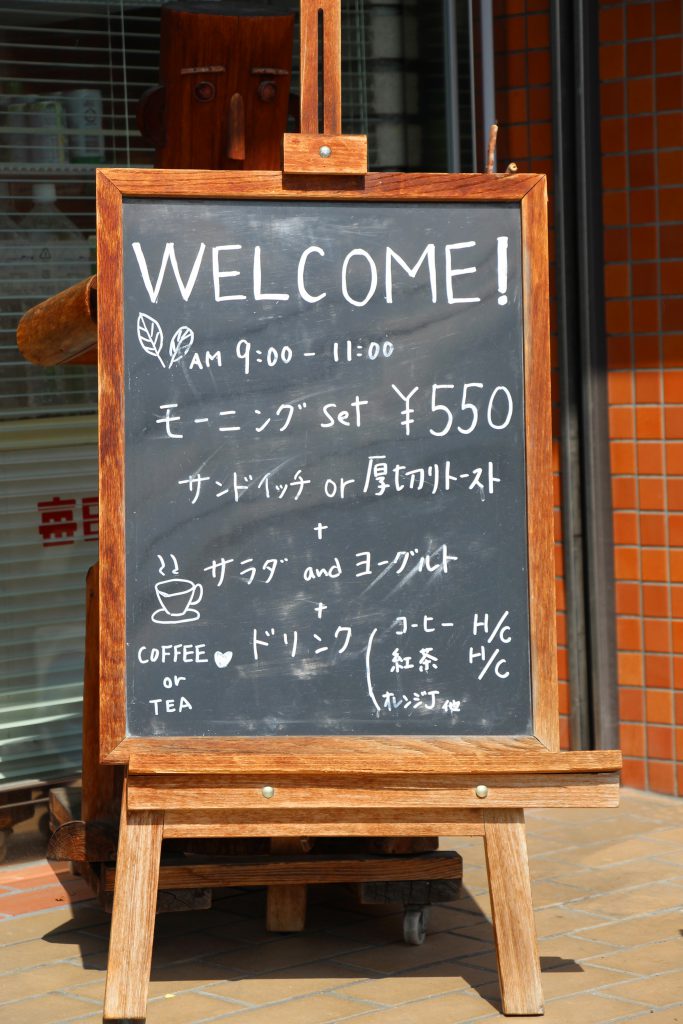 WELCOME!
AM 9:00 - 11:00
モーニング set ¥550
サンドイッチ or 厚切りトースト
+
サラダ and ヨーグルト
+
ドリンク
コーヒー H/C
紅茶 H/C
オレンジJ 他
COFFEE
or
TEA